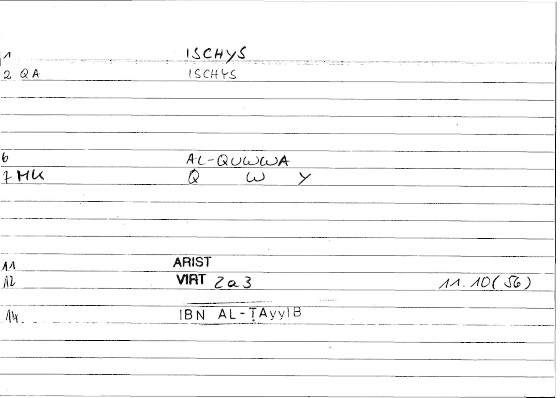 1 ISCHYS
2 QA ISCHYS
6 AL-QUWWA
7 MK Q W Y
11 ARIST
12 VIRT 2a3 11.10(56)
14. IBN AL-ṬAyyIB